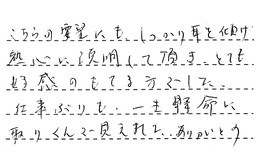 こちらの要望にも、しっかり耳を傾け
熱心に説明して頂き、とても
好感のもてる方でした。
仕事ぶりも、一生懸命に
取りくんで見えれた、ありがとう